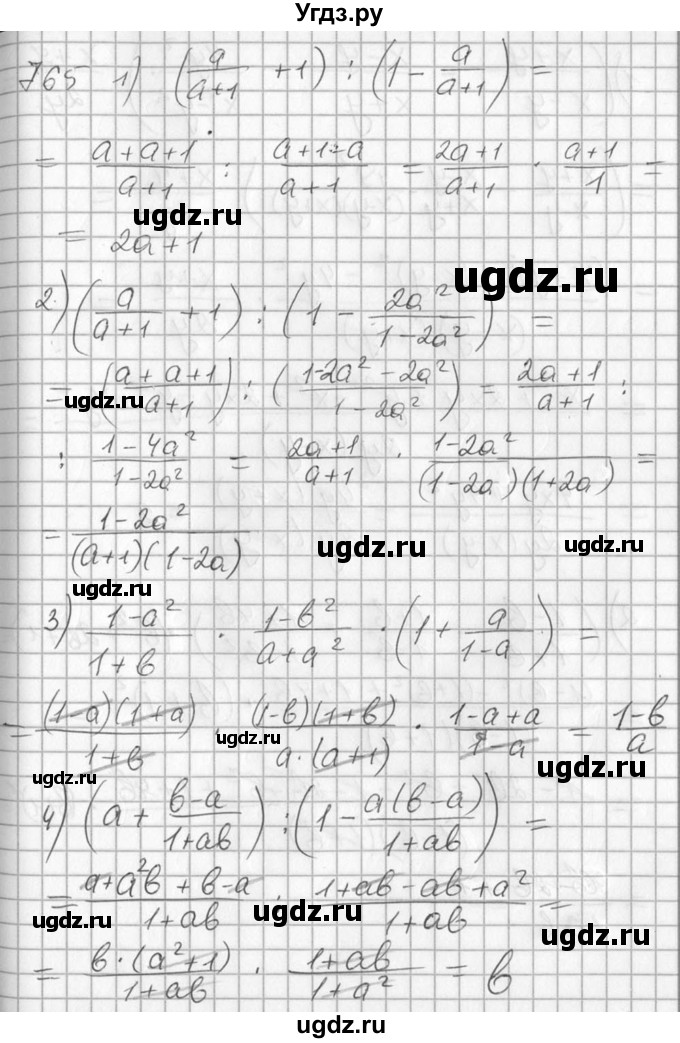 Угдз.ру
765 1) (a/(a+1) + 1) : (1 - a/(a+1)) =
= (a+a+1)/(a+1) : (a+1-a)/(a+1) = (2a+1)/(a+1) · (a+1)/1 =
ugdz.ru ugdz.ru
= 2a+1
ugdz.ru
2) (a/(a+1) + 1) : (1 - 2a²/(1-2a²)) =
= ((a+a+1)/(a+1)) : ((1-2a²-2a²)/(1-2a²)) = (2a+1)/(a+1) :
ugdz.ru ugdz.ru
: (1-4a²)/(1-2a²) = (2a+1)/(a+1) · (1-2a²)/((1-2a)(1+2a)) =
= (1-2a²)/((a+1)(1-2a))
ugdz.ru ugdz.ru
ugdz.ru
3) (1-a²)/(1+b) · (1-b²)/(a+a²) · (1 + a/(1-a)) =
= ((1-a)(1+a))/(1+b) · ((1-b)(1+b))/(a·(a+1)) · (1-a+a)/(1-a) = (1-b)/a
ugdz.ru
ugdz.ru ugdz.ru
4) (a + (b-a)/(1+ab)) : (1 - a(b-a)/(1+ab)) =
= (a+a²b+b-a)/(1+ab) : (1+ab-ab+a²)/(1+ab) =
ugdz.ru ugdz.ru ugdz.ru
= (b·(a²+1))/(1+ab) · (1+ab)/(1+a²) = b
ugdz.ru